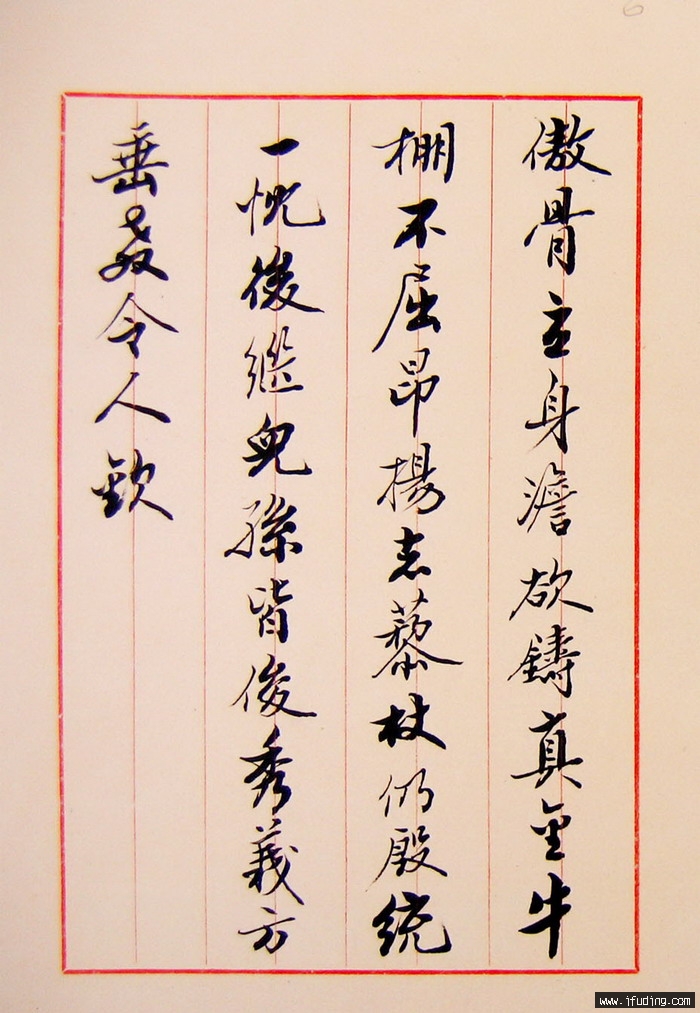 傲骨立身澹欲鑄真金牛
棚不屈昂揚志藜杖仍殷統
一忱後繼兒孫皆俊秀義方
垂令人欽
6
www.ifuding.com